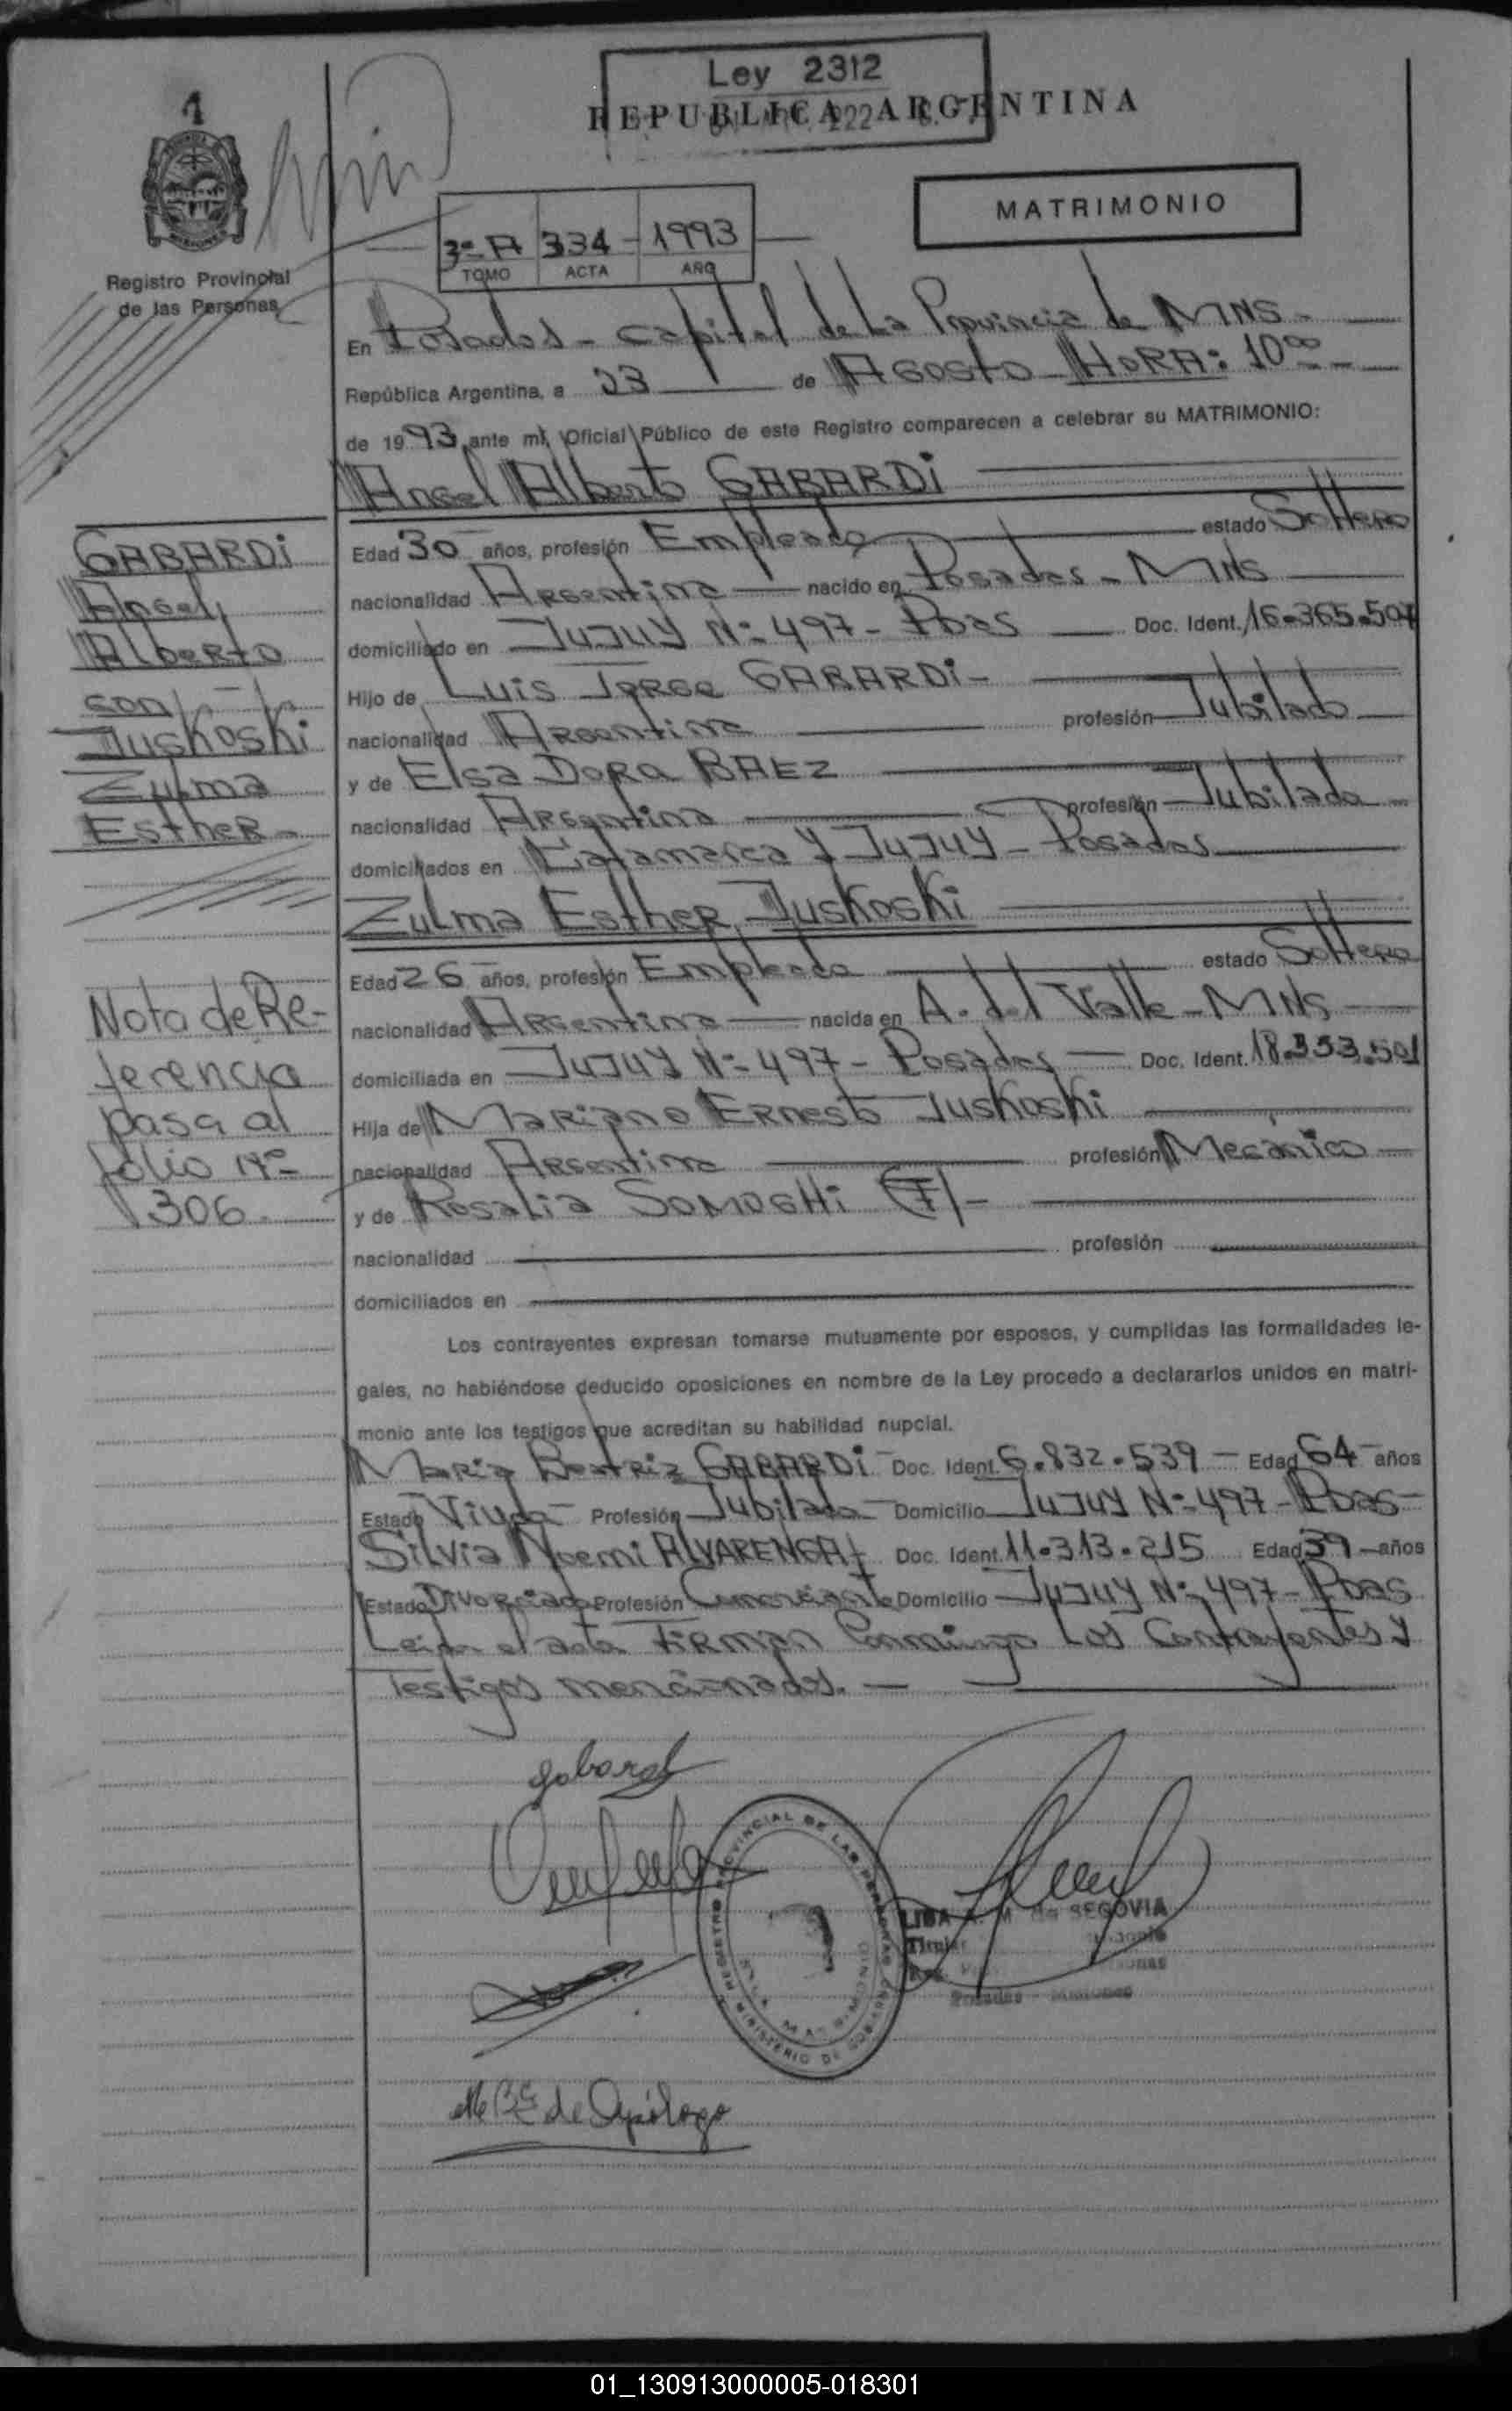 Ley 2312
REPUBLICA ARGENTINA
MATRIMONIO
3º A 334 - 1993
TOMO ACTA AÑO
Registro Provincial
de las Personas
En Posadas - Capital de La Provincia de MNS -
República Argentina, a 23 de Agosto HORA: 10ºº -
de 1993, ante mí, Oficial Público de este Registro comparecen a celebrar su MATRIMONIO:
Angel Alberto GABARDi
Edad 30 años, profesión Empleado estado Soltero
nacionalidad Argentina nacido en Posadas - MNS
domiciliado en JUJUY Nº 497 - Pdas Doc. Ident. 16.365.507
Hijo de Luis Jorge GABARDi -
nacionalidad Argentina profesión Jubilado
y de Elsa Dora BAEZ
nacionalidad Argentina profesión Jubilada
domiciliados en Catamarca Y JUJUY - Posadas
Zulma Esther Juskoski
Edad 26 años, profesión Empleada estado Soltera
nacionalidad Argentina nacida en A. del Valle - MNS
domiciliada en JUJUY Nº 497 - Posadas Doc. Ident. 18.353.501
Hija de Mariano Ernesto Juskoski
nacionalidad Argentina profesión Mecánico
y de Rosalia SOMOGHi (F) -
nacionalidad profesión
domiciliados en
GABARDi
Angel
Alberto
con
Juskoski
Zulma
Esther -
Nota de Re-
ferencia
pasa al
folio Nº
306.
Los contrayentes expresan tomarse mutuamente por esposos, y cumplidas las formalidades le-
gales, no habiéndose deducido oposiciones en nombre de la Ley procedo a declararlos unidos en matri-
monio ante los testigos que acreditan su habilidad nupcial.
Maria Beatriz GABARDi - Doc. Ident. 6.832.539 - Edad 64 años
Estado Viuda Profesión Jubilada Domicilio JUJUY Nº 497 - Pdas
Silvia Noemi ALVARENGA Doc. Ident. 11.313.215 Edad 39 años
Estado Divorciada Profesión Comerciante Domicilio JUJUY Nº 497 - Pdas
Leida el acta Firman Conmingo Los Contrayentes Y
Testigos mencionados. -
REGISTRO PROVINCIAL DE LAS PERSONAS
MINISTERIO DE GOBIERNO
SEGOVIA
Titular
Posadas - Misiones
de Apólogo
01_130913000005-018301